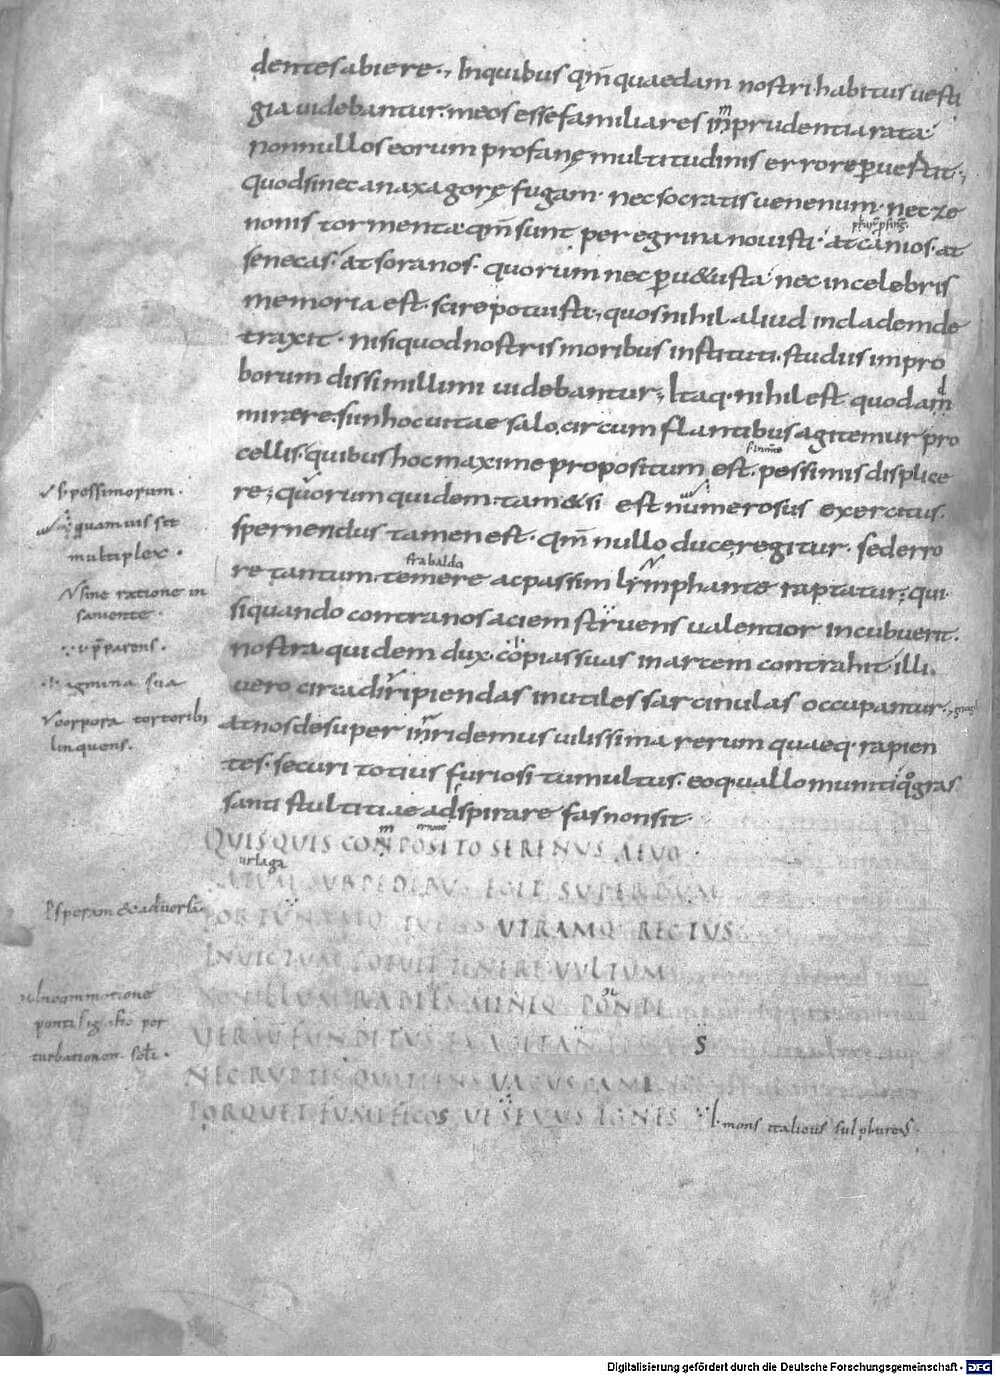 dentes abiere., Inquibus qm̄ quaedam nostri habitus uesti
gia uidebantur. meos esse familiares inprudentia rata
m
nonnullos eorum profanę multitudinis errore puertit.,
quodsi nec anaxagorę fugam. nec socratis uenenum. nec ze
nonis tormenta. qm̄ sunt peregrina nouisti. at canios. at
senecas. at soranos. quorum nec peruetusta nec incelebris
memoria est. scire potuisti., quos nihil aliud in clademde
traxit. nisi quod nostris moribus instituti. studiis impro
borum dissimillimi uidebantur., Itaq. nihil est quod am
d
mirere. si in hoc uitae salo. circum flantibus agitemur pro
cellis. quibus hoc maxime propositum est. pessimis displice
re; quorum quidem. tam&si est numerosus exercitus.
spernendus tamen est. qm̄ nullo duce regitur. sed erro
re tantum. temere ac passim lymphante raptatur; qui
frabaldo
si quando contra nos aciem struens ualentior incubuerit.
nostra quidem dux. copias suas in artem contrahit. illi.
uero circa diripiendas inutiles sarcinulas occupantur.,
at nos desuper inridemus uilissima rerum quaeq. rapien
tes. securi totius furiosi tumultus. eoq. uallo muniti qo gras
santi stultitiae adspirare fas non sit.
QUISQUIS CONPOSITO SERENUS AEUO.
m
urlaga
FATUM SUB PEDIBUS EGIT SUPERBUM
FORTUNAMQ TUENS UTRAMQ RECTUS
INUICTUM POTUIT TENERE UULTUM
NON ILLUM RABIES MINEQ PONTI
UERSUM FUNDITUS EXAGITANTIS
S
NEC RUPTIS QUOTIENS UAGUS CAMI
TORQUET FUMIFICOS UESEUUS IGNES
.i. mons italicus sulphureus.
.s. pessimorum.
quamuis set
multiplex.
sine ratione in
saniente.
pparens.
agmina sua
corpora tortorib;
linquens.
Prosperam & aduersam
Incommotione
ponti sig
turbationem